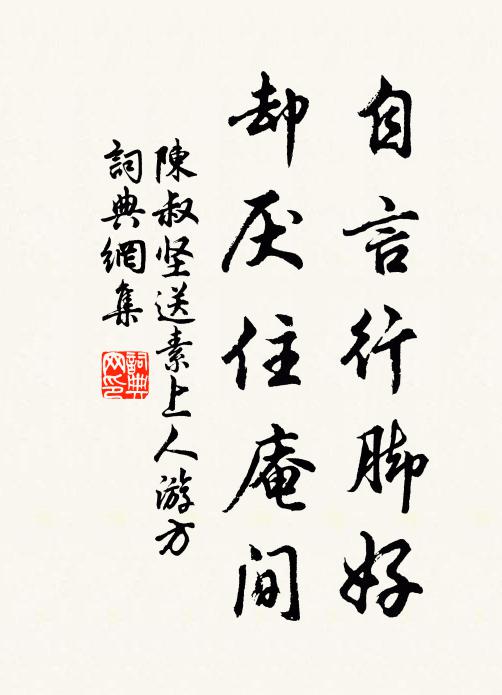 自言行脚好
却厌住庵间
陳叔坚送素上人游方
詞典網集
詞典网印